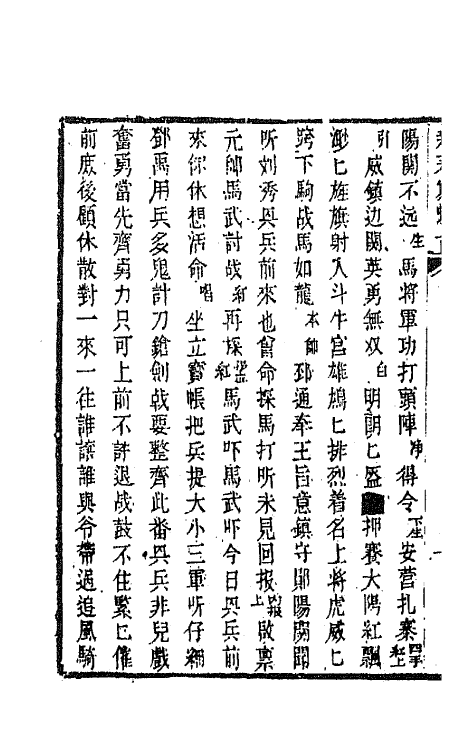 陽関不遠生馬將軍功打頭陣净得令下生安营扎寨四手紅上
引威鎮边関英勇無双白明朗匕盔押賽大陽紅飄
渺匕旌旗射人斗牛宫雄鴆匕排烈着名上將虎威匕
跨下駒战馬如龍本帥邳通奉王旨意鎮守鄖陽関聞
听刘秀兵前來也曾命探馬打听未見回报報上啟禀
元帥馬武討战紅再探馬武吓馬武吓今日兵前
來你休想活命唱坐立寳帳把兵提大小三軍听仔細
鄧禹用兵多鬼計刀鎗劍戟要整齊此番兵非兒戲
奮勇當先齊勇力只可上前不許退战鼓不住緊匕催
前庶後顧休散對一來一往誰讓誰與爷帶過追風騎